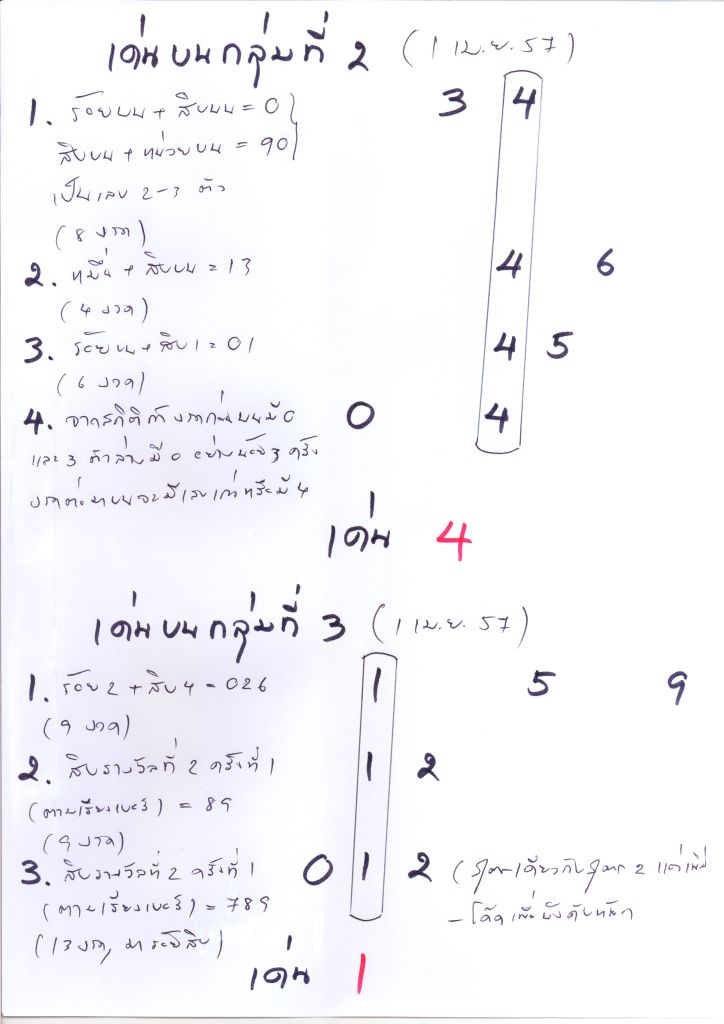 เด่นบนกลุ่มที่ 2 (1 เม.ย. 57)
1. ร้อยบน + สิบบน = 0 3 4
สิบบน + หน่วยบน = 90
เป็นเลข 2-3 ตัว
(8 งวด)
2. หมื่น + สิบบน = 13 4 6
(4 งวด)
3. ร้อยบน + สิบ 1 = 01 4 5
(6 งวด)
4. จากสถิติถ้างวดก่อนบนมี 0 0 4
และ 3 ตัวล่างมี 0 อย่างน้อย 3 ครั้ง
งวดต่อมาบนจะมีเลขเก่าหรือมี 4
เด่น 4
เด่นบนกลุ่มที่ 3 (1 เม.ย. 57)
1. ร้อย 2 + สิบ 4 = 026 1 5 9
(9 งวด)
2. สิบรางวัลที่ 2 ครั้งที่ 1 1 2
(ตามเรียงเบอร์) = 89
(9 งวด)
3. สิบรางวัลที่ 2 ครั้งที่ 1 0 1 2 (สูตรเดียวกับสูตร 2 แต่เพิ่ม
(ตามเรียงเบอร์) = 789 - โค๊ดเพื่อบังคับหลัก
(13 งวด, มาร้อยสิบ)
เด่น 1